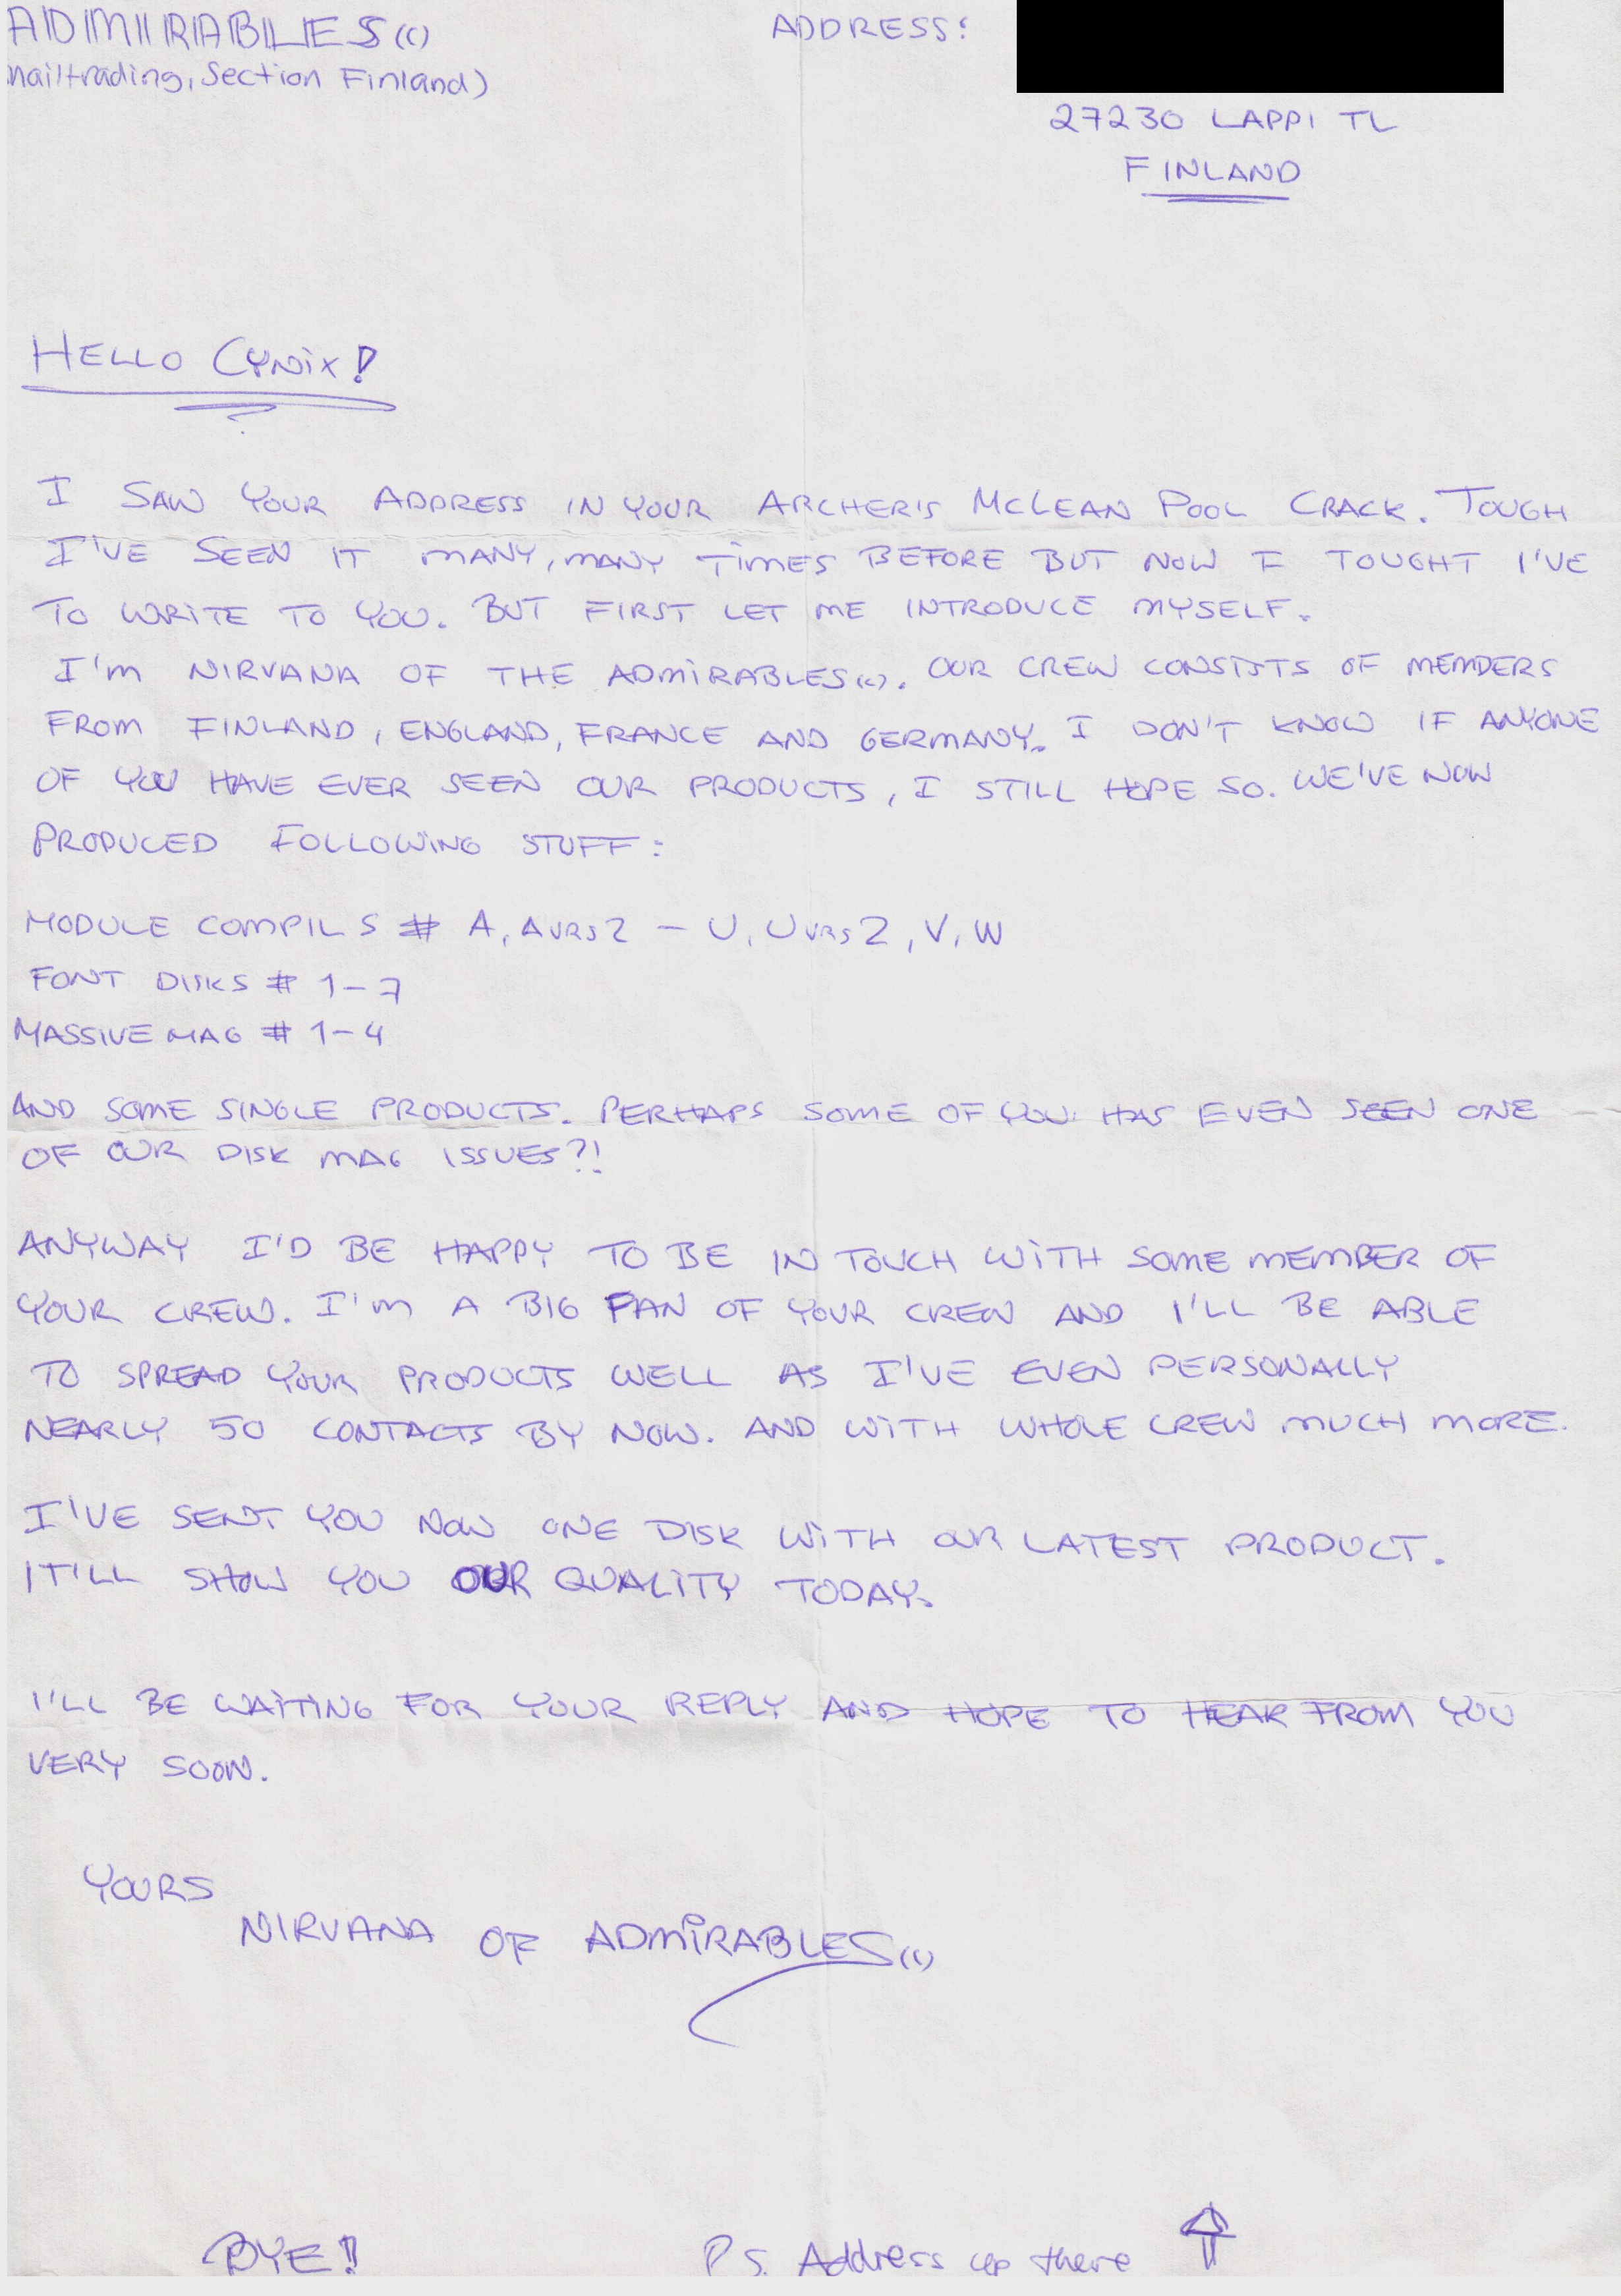 ADMIRABLES(C)
mailtrading, Section Finland)
ADDRESS:
27230 LAPPI TL
FINLAND
HELLO CYNIX!
I SAW YOUR ADDRESS IN YOUR ARCHER'S MCLEAN POOL CRACK. TOUGH
I'VE SEEN IT MANY, MANY TIMES BEFORE BUT NOW I TOUGHT I'VE
TO WRITE TO YOU. BUT FIRST LET ME INTRODUCE MYSELF.
I'M NIRVANA OF THE ADMIRABLES(C). OUR CREW CONSISTS OF MEMBERS
FROM FINLAND, ENGLAND, FRANCE AND GERMANY. I DON'T KNOW IF ANYONE
OF YOU HAVE EVER SEEN OUR PRODUCTS, I STILL HOPE SO. WE'VE NOW
PRODUCED FOLLOWING STUFF:
MODULE COMPILS # A, A VRS 2 - U, U VRS 2, V, W
FONT DISKS # 1-7
MASSIVE MAG # 1-4
AND SOME SINGLE PRODUCTS. PERHAPS SOME OF YOU HAS EVEN SEEN ONE
OF OUR DISK MAG ISSUES?!
ANYWAY I'D BE HAPPY TO BE IN TOUCH WITH SOME MEMBER OF
YOUR CREW. I'M A BIG FAN OF YOUR CREW AND I'LL BE ABLE
TO SPREAD YOUR PRODUCTS WELL AS I'VE EVEN PERSONALLY
NEARLY 50 CONTACTS BY NOW. AND WITH WHOLE CREW MUCH MORE.
I'VE SENT YOU NOW ONE DISK WITH OUR LATEST PRODUCT.
IT'LL SHOW YOU OUR QUALITY TODAY.
I'LL BE WAITING FOR YOUR REPLY AND HOPE TO HEAR FROM YOU
VERY SOON.
YOURS
NIRVANA OF ADMIRABLES(C)
BYE!
P.S. Address up there